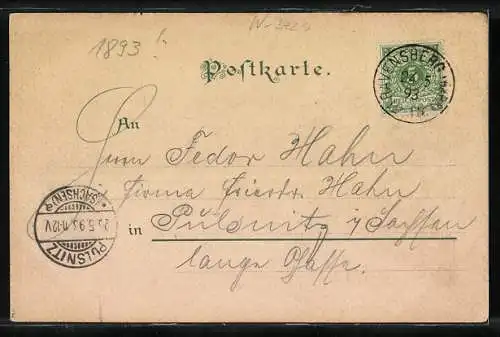 1893!
Postkarte.
RAVENSBERG
5
93
An
Herrn Fedor Hahn
Firma Friedr. Hahn
in Pulsnitz i/ Sachsen
lange Gasse.
PULSNITZ
(SACHSEN)
5.93.11-12V